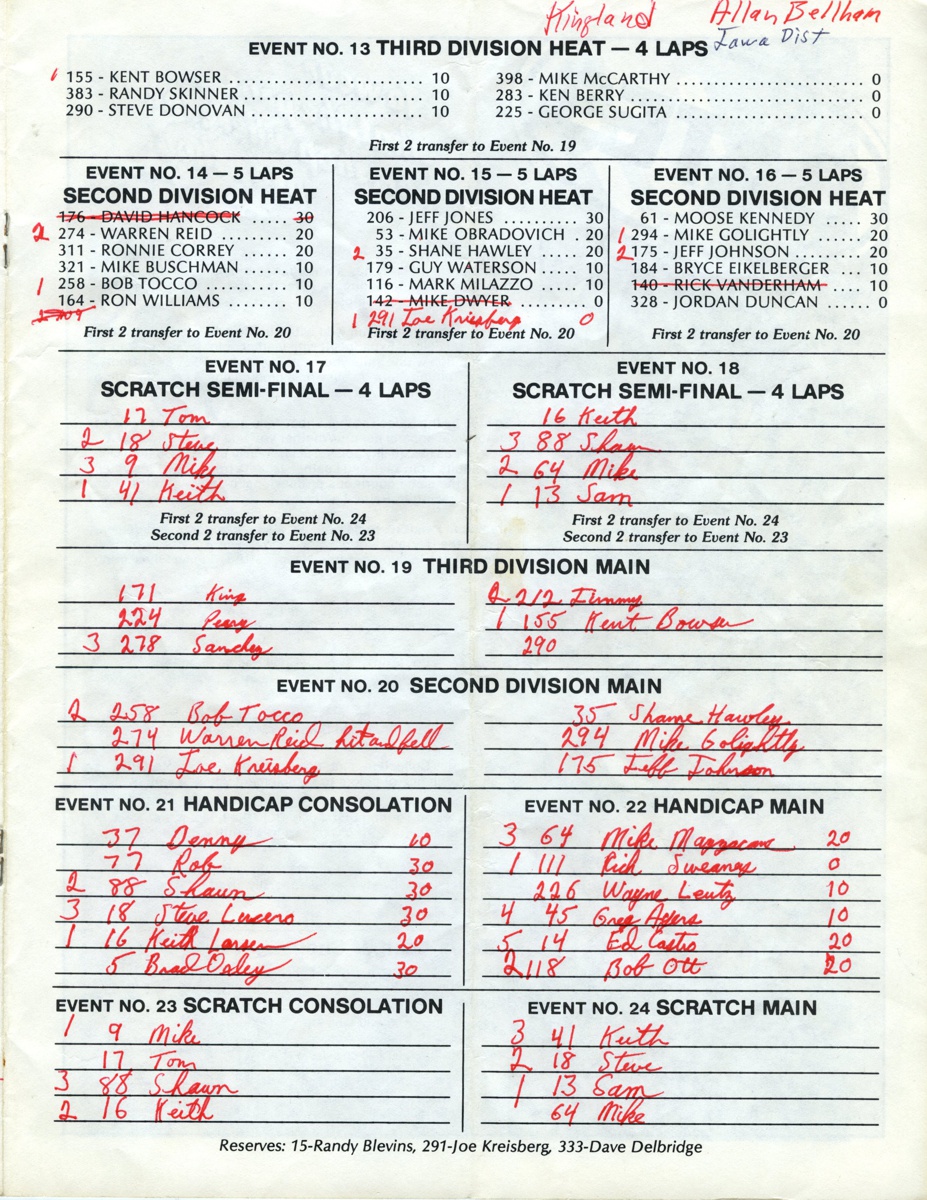 Kingland Allan Bellham
Iowa Dist
EVENT NO. 13 THIRD DIVISION HEAT — 4 LAPS
1 155 - KENT BOWSER .......................... 10
383 - RANDY SKINNER .......................... 10
290 - STEVE DONOVAN .......................... 10
398 - MIKE McCARTHY .......................... 0
283 - KEN BERRY .......................... 0
225 - GEORGE SUGITA .......................... 0
First 2 transfer to Event No. 19
EVENT NO. 14 — 5 LAPS
SECOND DIVISION HEAT
176 - DAVID HANCOCK ..... 30
2 274 - WARREN REID ......... 20
311 - RONNIE CORREY ....... 20
321 - MIKE BUSCHMAN ...... 10
1 258 - BOB TOCCO ........... 10
164 - RON WILLIAMS ........ 10
First 2 transfer to Event No. 20
EVENT NO. 15 — 5 LAPS
SECOND DIVISION HEAT
206 - JEFF JONES .......... 30
53 - MIKE OBRADOVICH . 20
2 35 - SHANE HAWLEY ...... 20
179 - GUY WATERSON ..... 10
116 - MARK MILAZZO ...... 10
142 - MIKE DWYER ......... 0
1 291 Joe Kriesberg 0
First 2 transfer to Event No. 20
EVENT NO. 16 — 5 LAPS
SECOND DIVISION HEAT
61 - MOOSE KENNEDY .... 30
1 294 - MIKE GOLIGHTLY ..... 20
2 175 - JEFF JOHNSON ........ 20
184 - BRYCE EIKELBERGER ... 10
140 - RICK VANDERHAM .... 10
328 - JORDAN DUNCAN ..... 0
First 2 transfer to Event No. 20
EVENT NO. 17
SCRATCH SEMI-FINAL — 4 LAPS
17 Tom
2 18 Steve
3 9 Mike
1 41 Keith
First 2 transfer to Event No. 24
Second 2 transfer to Event No. 23
EVENT NO. 18
SCRATCH SEMI-FINAL — 4 LAPS
16 Keith
3 88 Shawn
2 64 Mike
1 13 Sam
First 2 transfer to Event No. 24
Second 2 transfer to Event No. 23
EVENT NO. 19 THIRD DIVISION MAIN
171 King
224
3 278 Sandez
2 212 Jimmy
1 155 Kent Bowser
290
EVENT NO. 20 SECOND DIVISION MAIN
2 258 Bob Tocco
274 Warren Reid hit and fell
1 291 Joe Kreisberg
35 Shane Hawley
294 Mike Golightly
175 Jeff Johnson
EVENT NO. 21 HANDICAP CONSOLATION
37 Denny 10
77 Rob 30
2 88 Shawn 30
3 18 Steve Lucero 30
1 16 Keith Larsen 20
5 Brad Oxley 30
EVENT NO. 22 HANDICAP MAIN
3 64 Mike 20
1 111 Rick Sweaney 0
226 Wayne Leutz 10
4 45 Greg Agers 10
5 14 Ed Castro 20
2 118 Bob Ott 20
EVENT NO. 23 SCRATCH CONSOLATION
1 9 Mike
17 Tom
3 88 Shawn
2 16 Keith
EVENT NO. 24 SCRATCH MAIN
3 41 Keith
2 18 Steve
1 13 Sam
64 Mike
Reserves: 15-Randy Blevins, 291-Joe Kreisberg, 333-Dave Delbridge